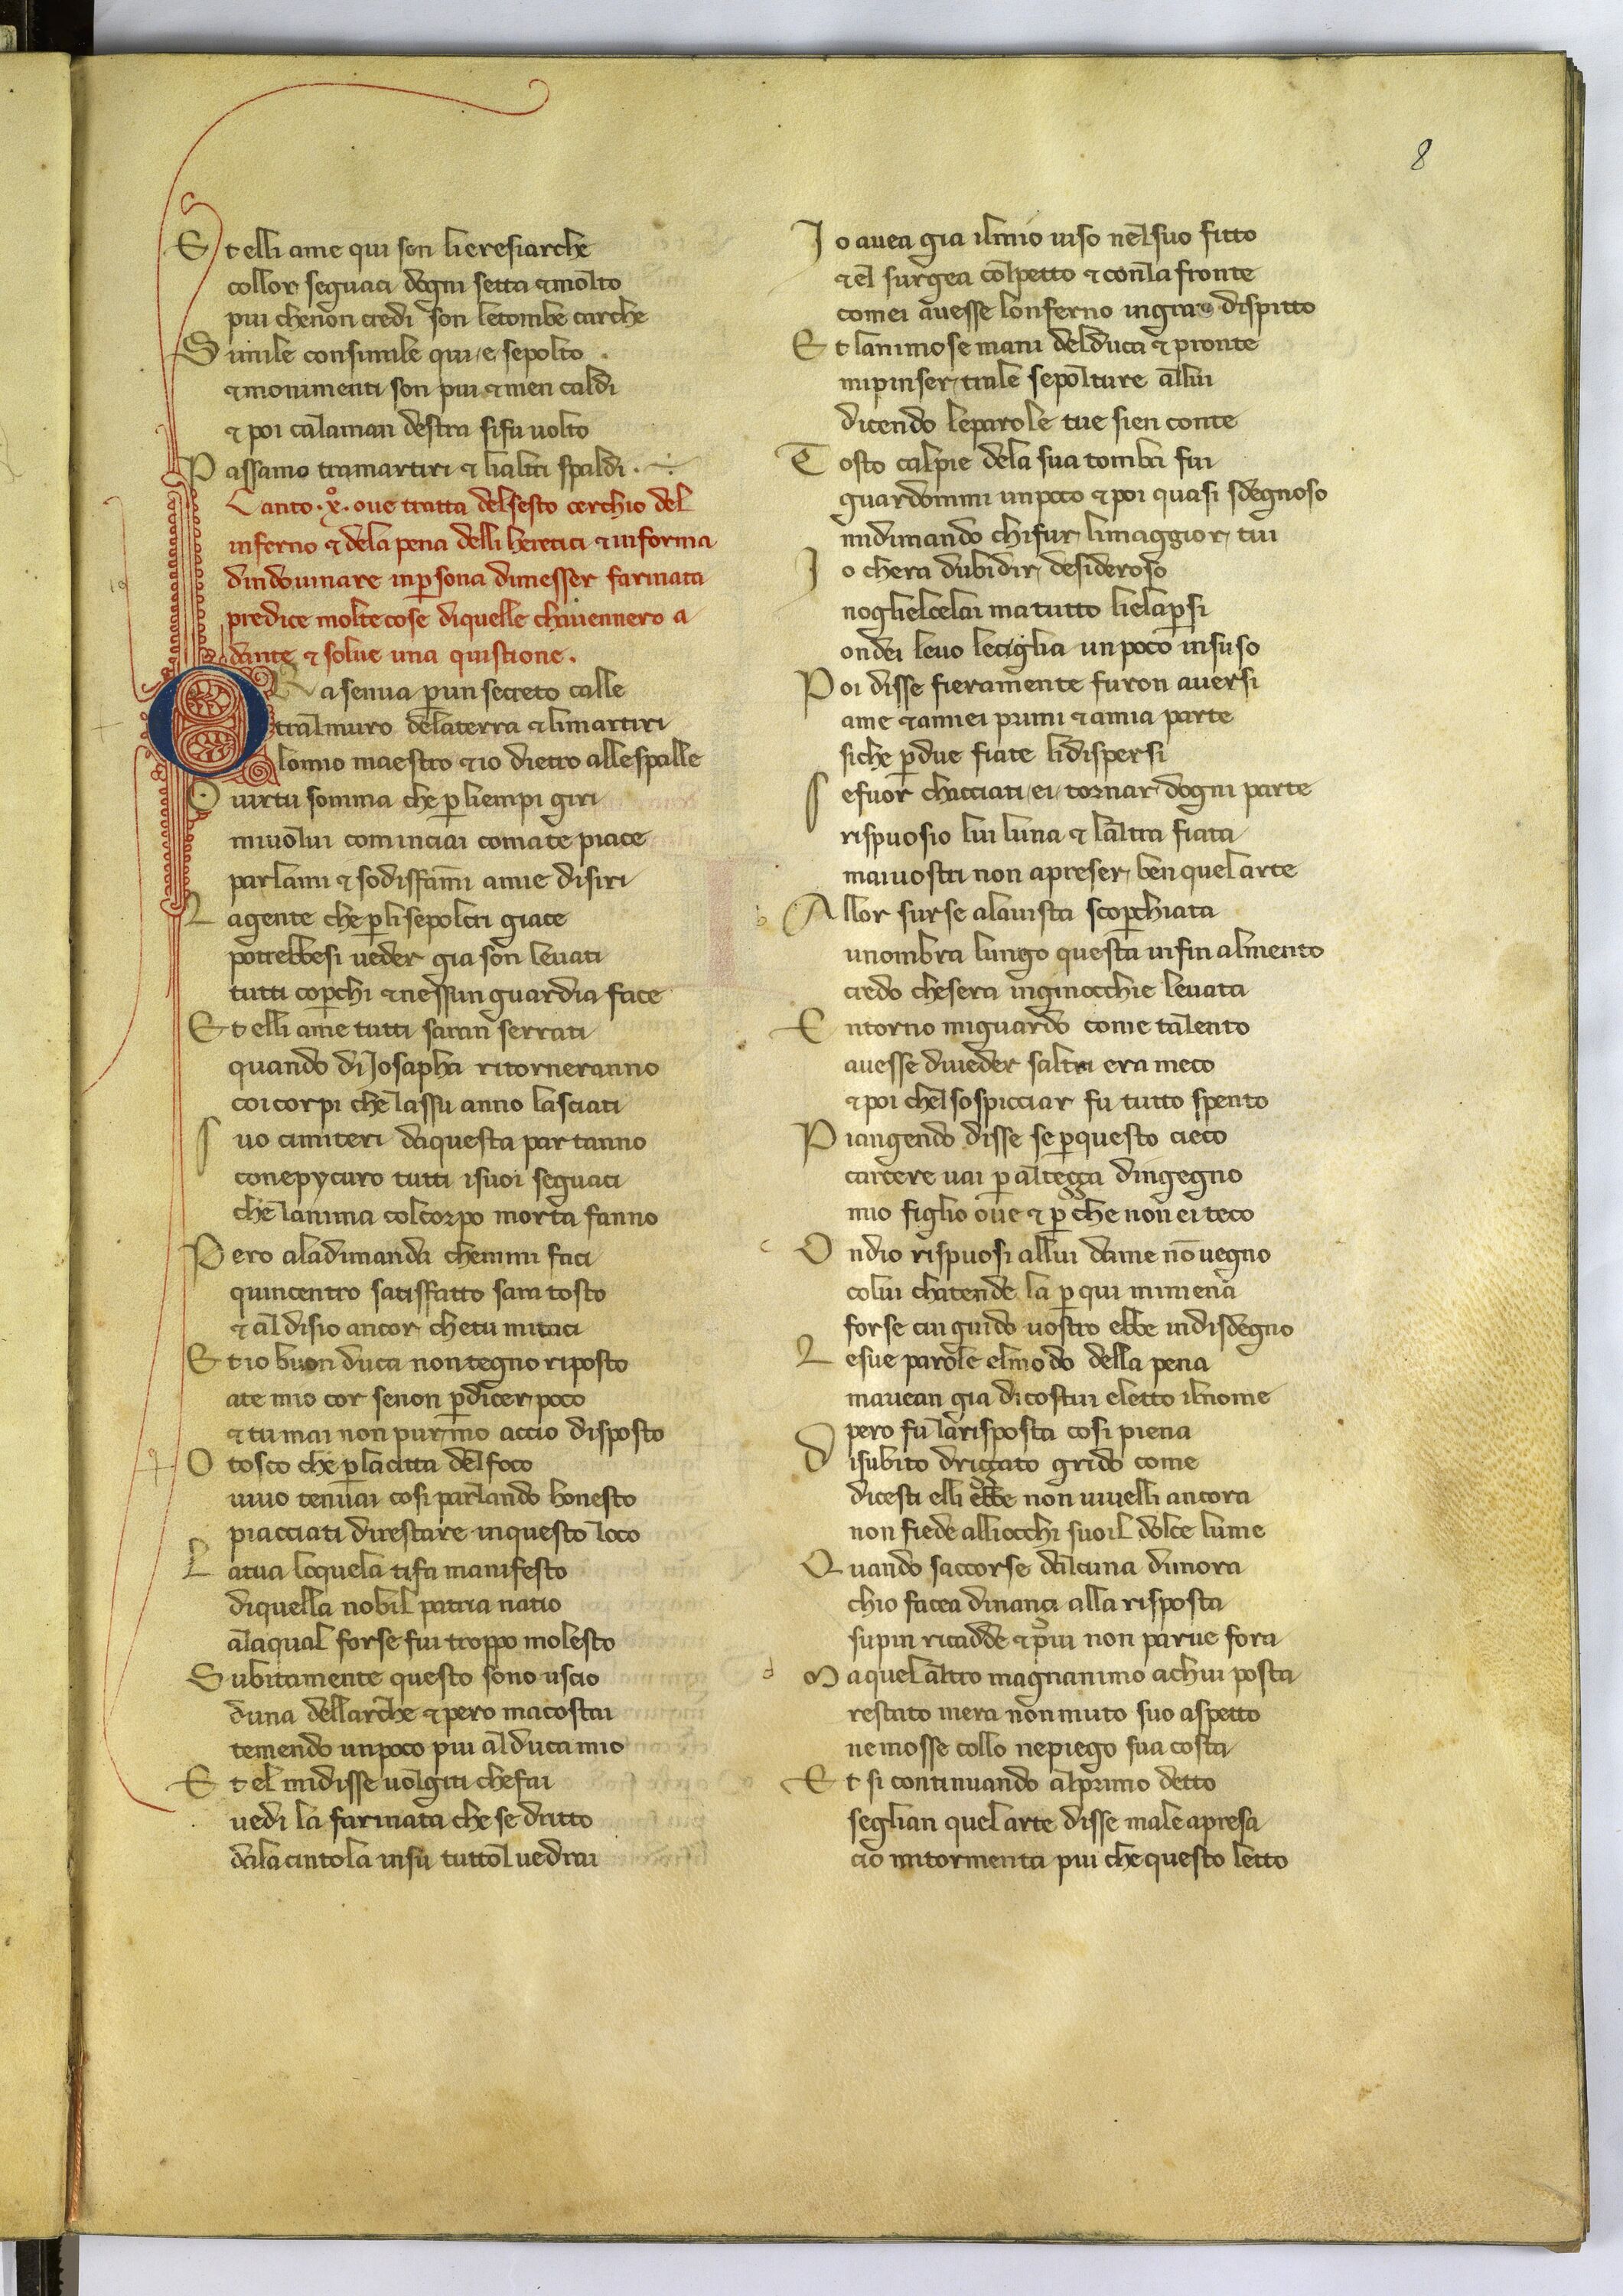 8
Et elli ame qui son li eresiarche
collor seguaci dogni setta ⁊ molto
piu chenon credi son letombe carche
Simile consimile qui e sepolto .
⁊ monimenti son piu ⁊ men caldi
⁊ poi calaman destra sifu uolto
Passamo tramartiri ⁊ lialti spaldi .
Canto .xº. oue tratta delsesto cerchio del
inferno ⁊ dela pena delli heretici ⁊ informa
dindouinare inpersona dimesser farinata
predice molte cose diquelle chauennero a
dante ⁊ solue una quistione .
ORa senua per un secreto calle
tralmuro delaterra ⁊ limartiri
lomio maestro ⁊ io dietro allespalle
O uirtu somma che per liempi giri
miuolui cominciai comate piace
parlami ⁊ sodisfammi amie disiri
Lagente che per lisepolcri giace
potrebbesi ueder gia son leuati
tutti coperchi ⁊ nessun guardia face
Et elli ame tutti saran serrati
quando di Josapha ritorneranno
coi corpi che lassu anno lasciati
Suo cimiteri daquesta partanno
conepycuro tutti isuoi seguaci
che lanima colcorpo morta fanno
Pero aladimanda chemmi faci
quincentro satisfatto sara tosto
⁊ al disio ancor chetu mitaci
Et io buon duca non tegno riposto
ate mio cor senon per dicer poco
⁊ tu mai non pur mo accio disposto
O tosco che per lacitta del foco
uiuo tenuai cosi parlando honesto
piacciati direstare inquesto loco
Latua loquela tifa manifesto
diquella nobil patria natio
alaqual forse fui troppo molesto
Subitamente questo sono uscio
duna dellarche ⁊ pero macostai
temendo unpoco piu al duca mio
Et el midisse uolgiti chefai
uedi la farinata che se dritto
dala cintola insu tuttol uedrai
Io auea gia ilmio uiso nel suo fitto
⁊ el surgea colpetto ⁊ conla fronte
comei auesse lonferno ingran dispitto
Et lanimose mani delduca ⁊ pronte
mipinser trale sepolture allui
dicendo leparole tue sien conte
Tosto calpie dela sua tomba fui
guardommi unpoco ⁊ poi quasi sdegnoso
midimando chifur limaggior tui
Io chera dubidir desideroso
noglielcelai ma tutto lielapersi
ondei leuo leciglia un poco insuso
Poi disse fieramente furon auersi
ame ⁊ amiei primi ⁊ amia parte
siche per due fiate lidispersi
Sefuor chacciati ei tornar dogni parte
rispuosio lui luna ⁊ laltra fiata
maiuostri non apreser ben quel arte
Allor surse alauista scoperchiata
unombra lungo questa infin almento
credo chesera inginocchie leuata
Entorno miguardo come talento
auesse diueder saltri era meco
⁊ poi chelsospicciar fu tutto spento
Piangendo disse se per questo cieco
carcere uai per altezza dingegno
mio figlio oue ⁊ per che non ei teco
Ondio rispuosi allui dame no uegno
colui chatende la per qui mimena
forse cui guido uostro ebbe indisdegno
Lesue parole elmodo della pena
mauean gia dicostui eletto ilnome
pero fu larisposta cosi piena
Disubito drizzato grido come
dicesti elli ebbe non uiuelli ancora
non fiede alliocchi suoil dolce lume
Quando saccorse dalcuna dimora
chio facea dinanzi alla risposta
supin ricadde ⁊ piu non parue fora
Maquel altro magnanimo achui posta
restato mera non muto suo aspetto
ne mosse collo nepiego sua costa
Et si continuando alprimo detto
seglian quel arte disse male apresa
cio mitormenta piu che questo letto